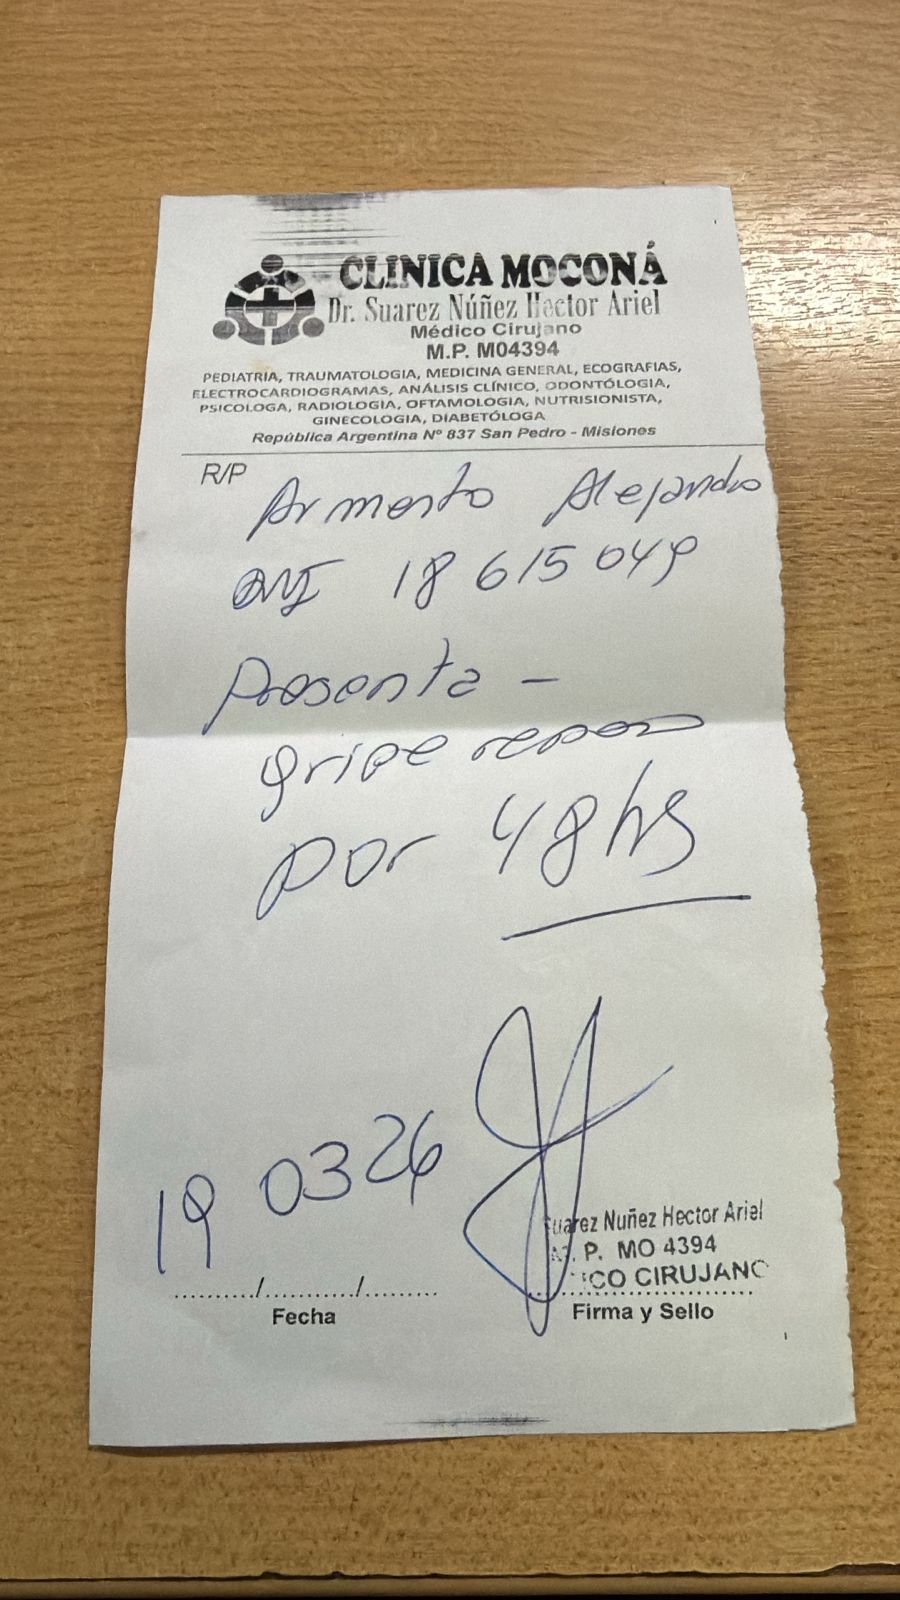 CLINICA MOCONÁ
Dr. Suarez Núñez Hector Ariel
Médico Cirujano
M.P. M04394
PEDIATRIA, TRAUMATOLOGIA, MEDICINA GENERAL, ECOGRAFIAS,
ELECTROCARDIOGRAMAS, ANÁLISIS CLÍNICO, ODONTÓLOGIA,
PSICOLOGA, RADIOLOGIA, OFTAMOLOGIA, NUTRISIONISTA,
GINECOLOGIA, DIABETÓLOGA
República Argentina Nº 837 San Pedro - Misiones
R/P
Armesto Alejandro
DNI 18 615 049
Presenta -
gripe reposo
por 48 hs
19 03 26
uarez Nuñez Hector Ariel
M. P. MO 4394
ICO CIRUJANO
........./............../............
Fecha
Firma y Sello